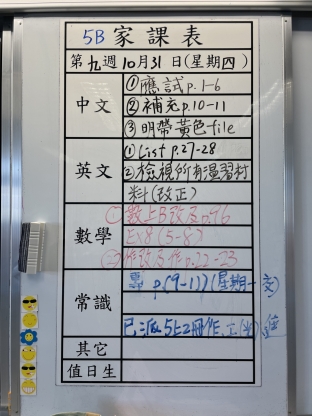 5B 家課表
第九週10月31日(星期四)
中文
①應試p.1-6
②補充p.10-11
③明帶黃色file
英文
①List p.27-28
②檢視所有溫習材
料(改正)
數學
①數上B改及p.96
Ex8(5-8)
②作改及作p.22-23
常識
p(9-11)(星期一交)
已派5上2冊作,工(光)
其它
值日生